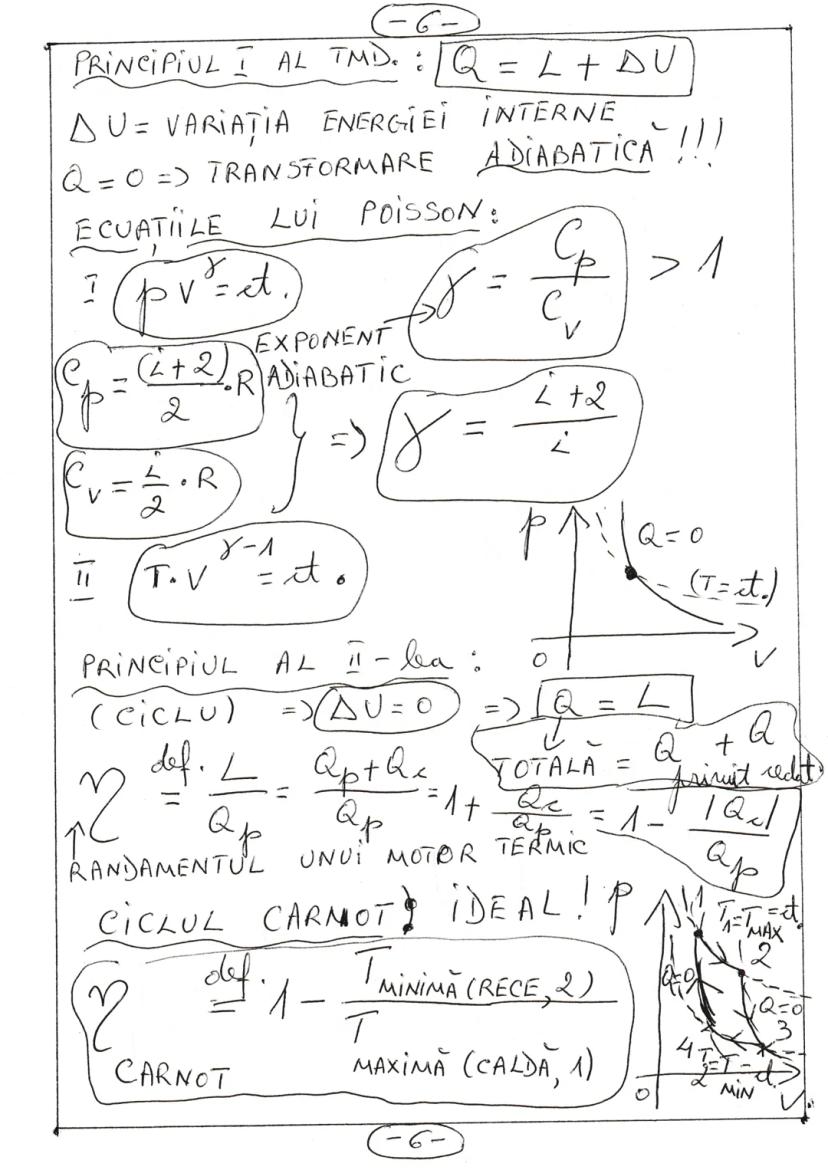 -6-
PRINCIPIUL I AL TMD. : Q = L + ΔU
ΔU = VARIAȚIA ENERGIEI INTERNE
Q = 0 => TRANSFORMARE ADIABATICĂ!!!
ECUAȚIILE LUI POISSON:
I pV^γ = ct. γ = Cp/Cv > 1
EXPONENT ADIABATIC
Cp = (i+2)/2 · R
Cv = i/2 · R } => γ = i+2/i
II T·V^γ-1 = ct.
p Q=0
(T=ct.)
0 V
PRINCIPIUL AL II-lea:
(CICLU) => ΔU = 0 => Q = L
TOTALĂ = Q primit + Q cedat
η def. = L/Qp = Qp+Qc/Qp = 1 + Qc/Qp = 1 - |Qc|/Qp
RANDAMENTUL UNUI MOTOR TERMIC
CICLUL CARNOT: IDEAL!
η CARNOT def. = 1 - T MINIMĂ (RECE, 2) / T MAXIMĂ (CALDĂ, 1)
p 1 T1=TMAX=ct.
2
Q=0 Q=0
3
4 T2=TMIN=ct.
0 V
-6-